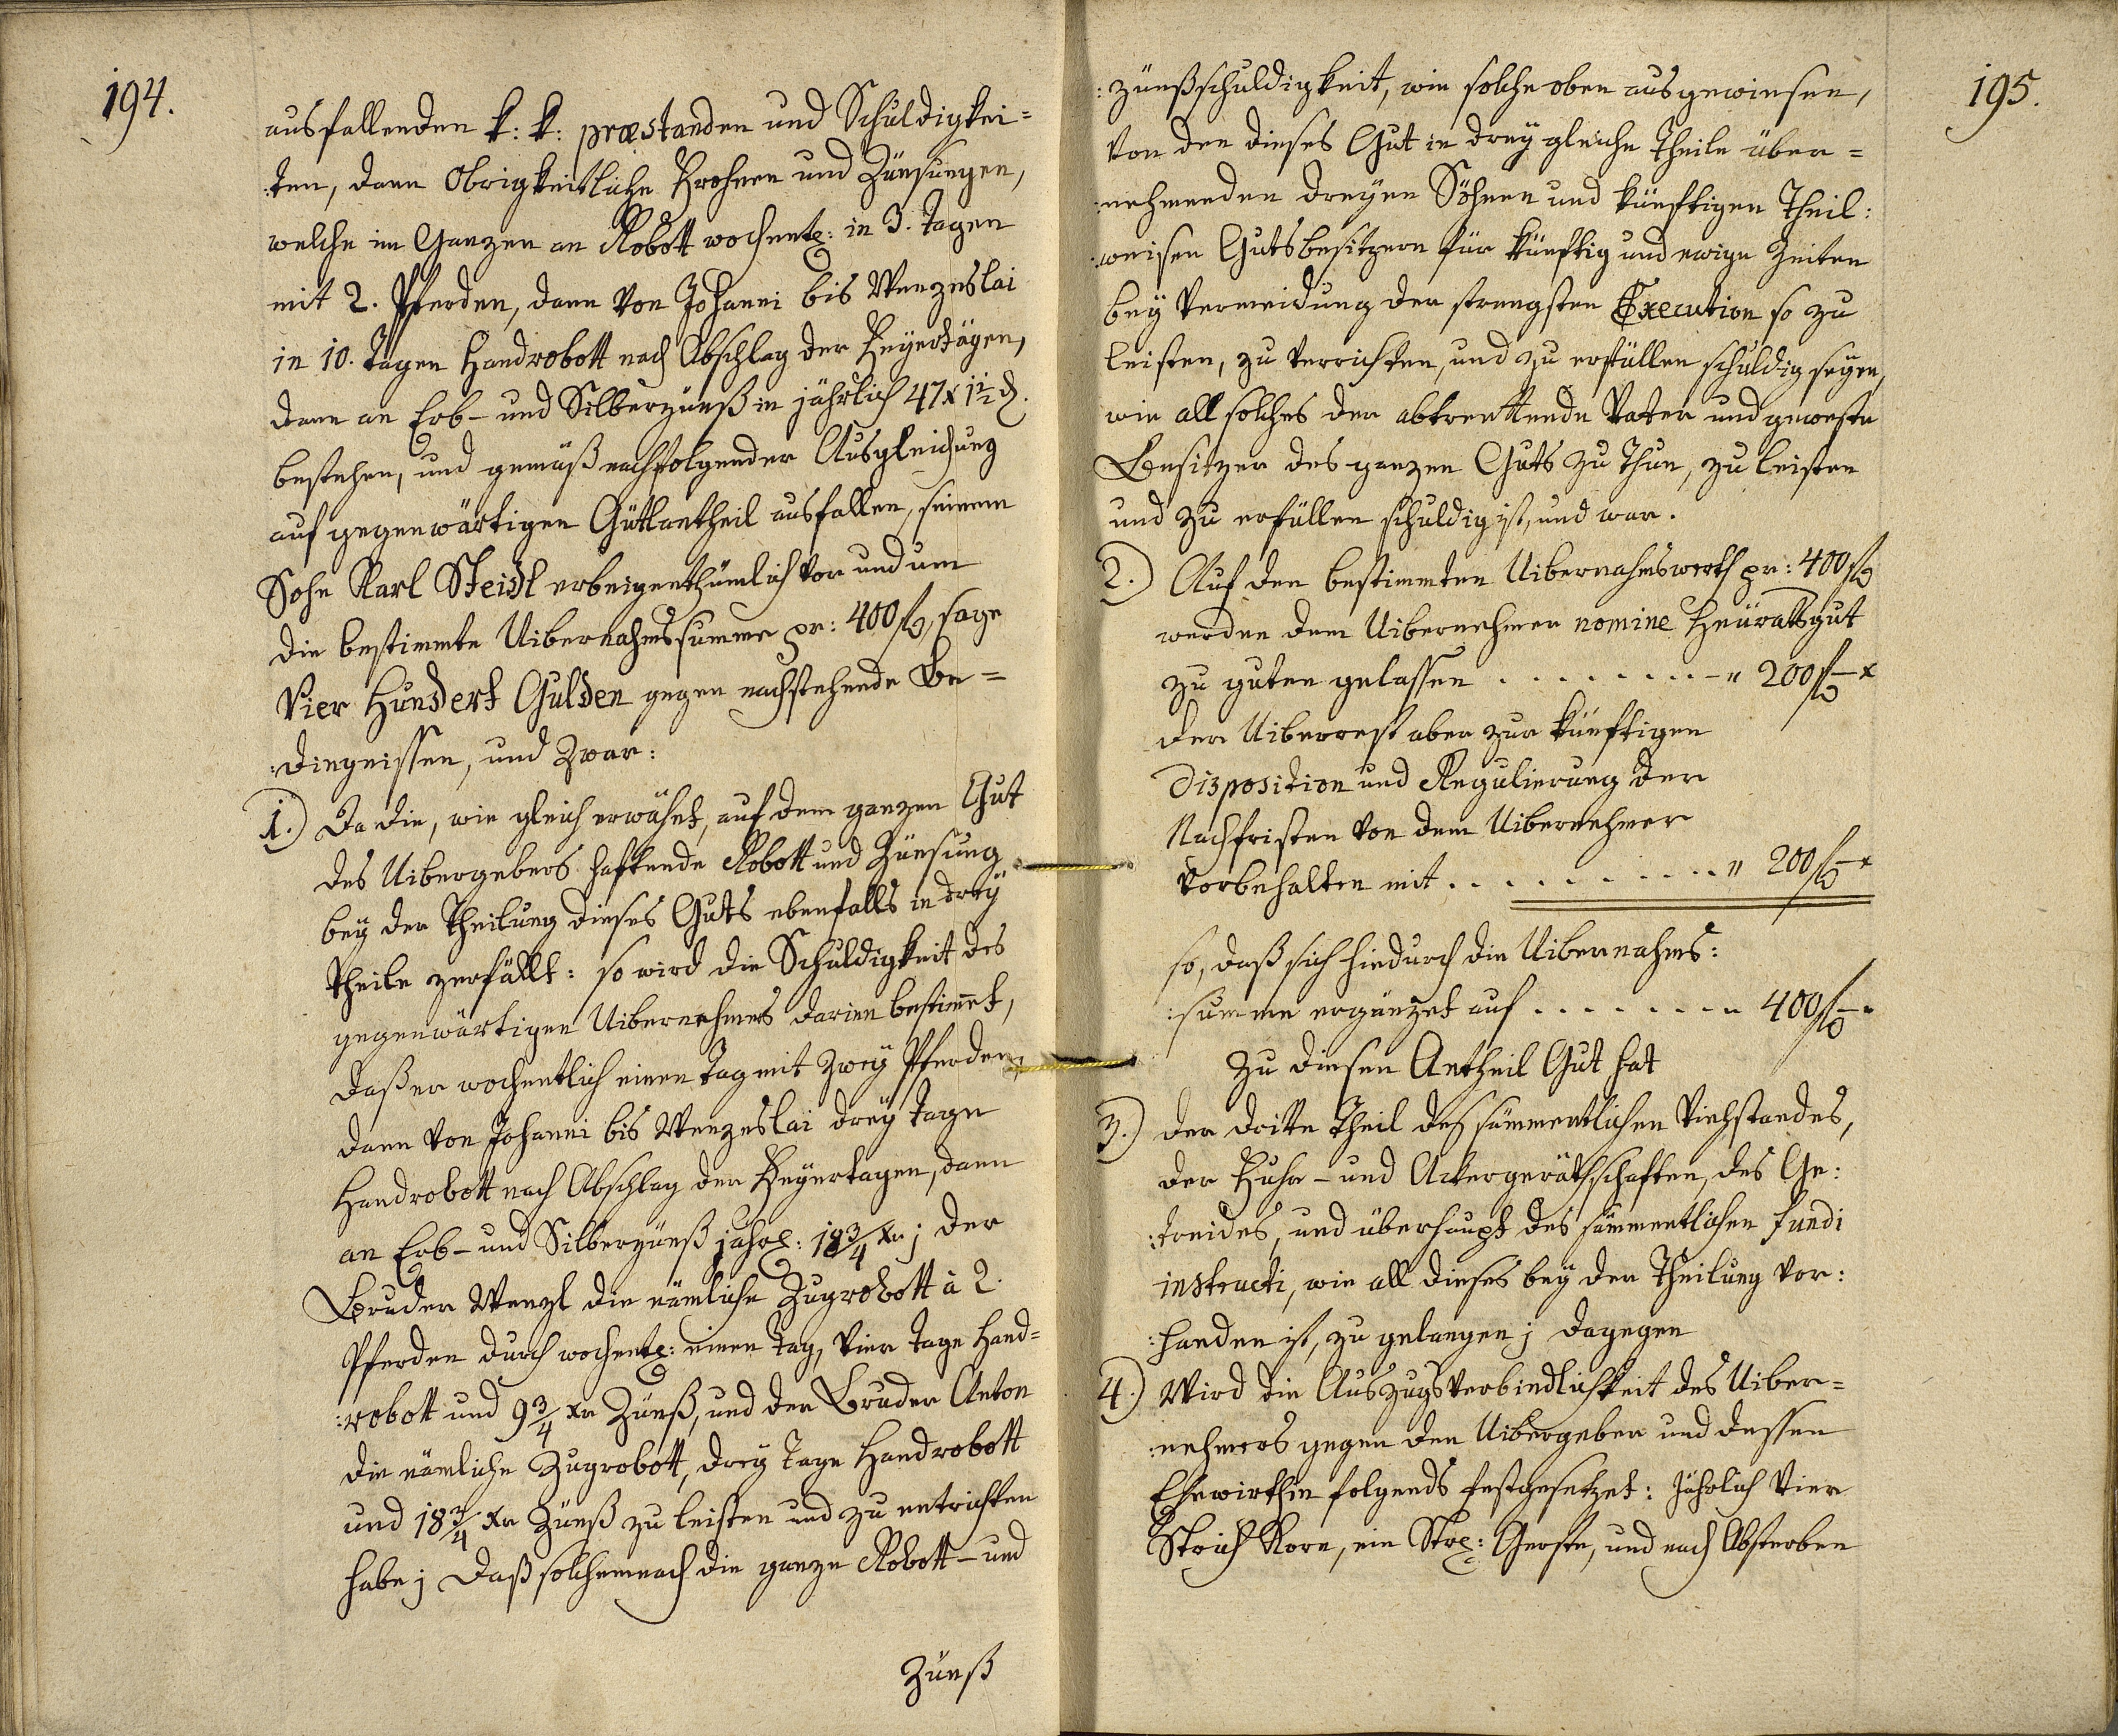 194.
ausfallenden k: k: præstanden und Schuldigkei=
:ten, dann Obrigkeitliche Frohnen und Zünsungen,
welche im Ganzen an Robott wochentl: in 3. Tagen
mit 2. Pferden, dann von Johanni bis Wenzeslai
in 10. Tagen Handrobott nach Abschlag der Feyertägen,
dann an Erb- und Silberzünß in jährlich 47 x 1½ d.
bestehen, und gemäß nachfolgender Ausgleichung
auf gegenwärtigen Gütlantheil ausfallen, seinem
Sohn Karl Steidl erbeigenthümlich vor und um
die bestimmte Uibernahmssumme pr: 400 fl, sage
Vier Hundert Gulden gegen nachstehende Be=
:dingnissen, und Zwar:
1.) Da die, wie gleich erwähnt, auf dem ganzen Gut
des Uibergebers haftende Robott und Zünsung
bey der Theilung dieses Guts ebenfalls in drey
Theile zerfällt: so wird die Schuldigkeit des
gegenwärtigen Uibernehmers darinn bestimmet,
daß er wochentlich einen Tag mit Zwey Pferden,
dann von Johanni bis Wenzeslai drey Tage
Handrobott nach Abschlag der Feyertagen, dann
an Erb- und Silberzünß jährl: 18 3/4 xr; der
Bruder Wenzl die nämliche Zugrobott à 2.
Pferden durch wochentl: einen Tag, vier Tage Hand=
:robott und 9 3/4 xr Zünß, und der Bruder Anton
die nämliche Zugrobott, drey Tage Handrobott
und 18 3/4 xr Zünß zu leisten und zu entrichten
habe; daß solchemnach die ganze Robott- und
Zünß
195.
:zünßschuldigkeit, wie solche oben ausgewiesen,
von den dieses Gut in drey gleiche Theile über=
:nehmenden dreyen Söhnen und künftigen Theil:
:weisen Gutsbesitzern für künftig und ewige Zeiten
bey Vermeidung der strengsten Execution so zu
leisten, zu verrichten, und zu erfüllen schuldig seyen,
wie all solches der abtrettende Vater und geweste
Besitzer des ganzen Guts zu thun, zu leisten
und zu erfüllen schuldig ist, und war.
2.) Auf den bestimmten Uibernahmswerth pr: 400 fl
werden dem Uibernehmer nomine Heürathsgut
zu guten gelassen . . . . . . . . . - " 200 fl - x
der Uiberrest aber zur künftigen
Disposition und Regulierung der
Nachfristen von dem Uibernehmer
vorbehalten mit . . . . . . . . . . . " 200 fl - x
so, daß sich hiedurch die Uibernahms:
:summe ergänzet auf . . . . . . . " 400 fl - "
Zu diesen Antheil Gut hat
3.) der dritte Theil des sämmentlichen Viehstandes,
der Fuhr- und Ackergeräthschaften, des Ge:
:treides, und überhaupt des sämmentlichen fundi
instructi, wie all dieses bey der Theilung vor:
:handen ist, zu gelangen; dagegen
4.) Wird die Auszugsverbindlichkeit des Uiber=
:nehmers gegen den Uibergeber und dessen
Ehewirthin folgends festgesetzet: Jährlich vier
Strich Korn, ein Strl: Gerste, und nach Absterben